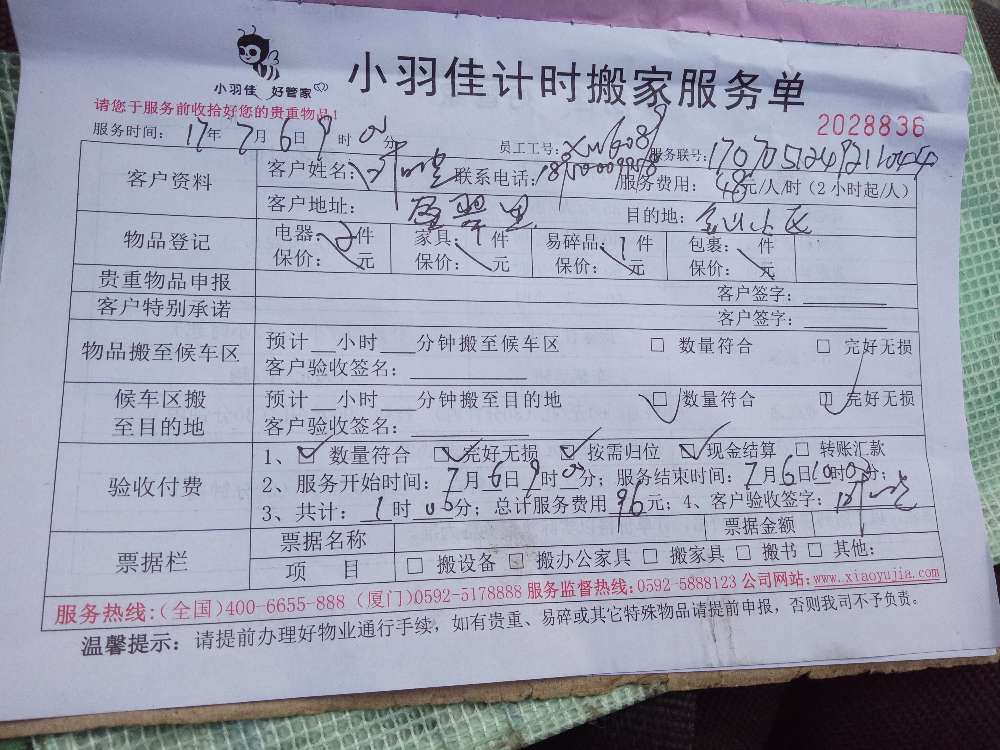 小羽佳 好管家
小羽佳计时搬家服务单
请您于服务前收拾好您的贵重物品!
2028836
服务时间: 17年7月6日9时00分
员工工号: 服务联号:
客户资料
客户姓名: 联系电话: 服务费用: 48元/人/时(2小时起/人)
客户地址: 目的地:
物品登记
电器: 2件 家具: 1件 易碎品: 1件 包裹: 件
保价: 元 保价: 元 保价: 元 保价: 元
贵重物品申报 客户签字:
客户特别承诺 客户签字:
物品搬至候车区
预计 小时 分钟搬至候车区 数量符合 完好无损
客户验收签名:
候车区搬至目的地
预计 小时 分钟搬至目的地 数量符合 完好无损
客户验收签名:
验收付费
1、 数量符合 完好无损 按需归位 现金结算 转账汇款
2、服务开始时间: 7月6日9时00分; 服务结束时间: 7月6日10时00分;
3、共计: 1时00分; 总计服务费用 96元; 4、客户验收签字:
票据栏
票据名称 票据金额
项 目 搬设备 搬办公家具 搬家具 搬书 其他:
服务热线:(全国)400-6655-888 (厦门)0592-5178888 服务监督热线:0592-5888123 公司网站:www.xiaoyujia.com
温馨提示: 请提前办理好物业通行手续, 如有贵重、易碎或其它特殊物品请提前申报, 否则我司不予负责。